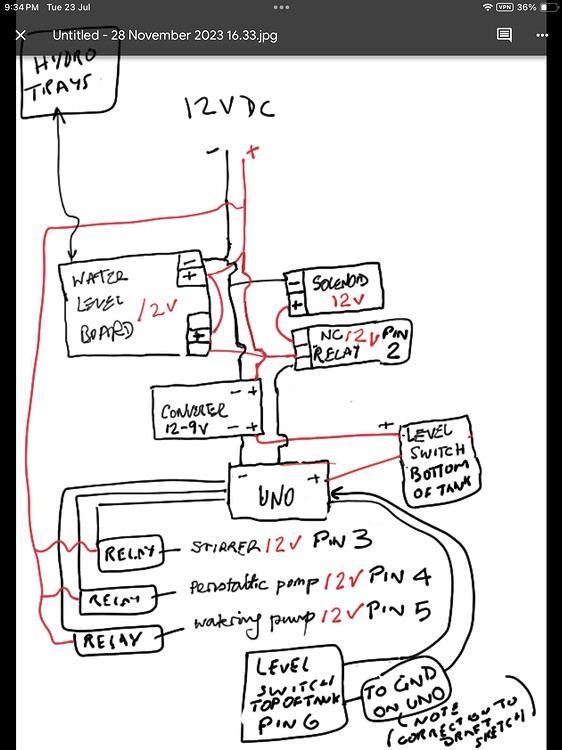 9:34 PM Tue 23 Jul
VPN 36%
Untitled - 28 November 2023 16.33.jpg
HYDRO
TRAYS
12V DC
- +
WATER
LEVEL
BOARD
12V
-
+
+
-
+
SOLENOID
12V
NC 12V PIN
RELAY 2
- +
CONVERTER
12-9V
- +
+
LEVEL
SWITCH
BOTTOM
OF TANK
- +
UNO
RELAY STIRRER 12V PIN 3
RELAY Peristaltic pump 12V PIN 4
RELAY watering pump 12V PIN 5
LEVEL
SWITCH
TOP OF TANK
PIN 6
TO GND
ON UNO
(NOTE
CORRECTION TO
DRAFT
SKETCH)